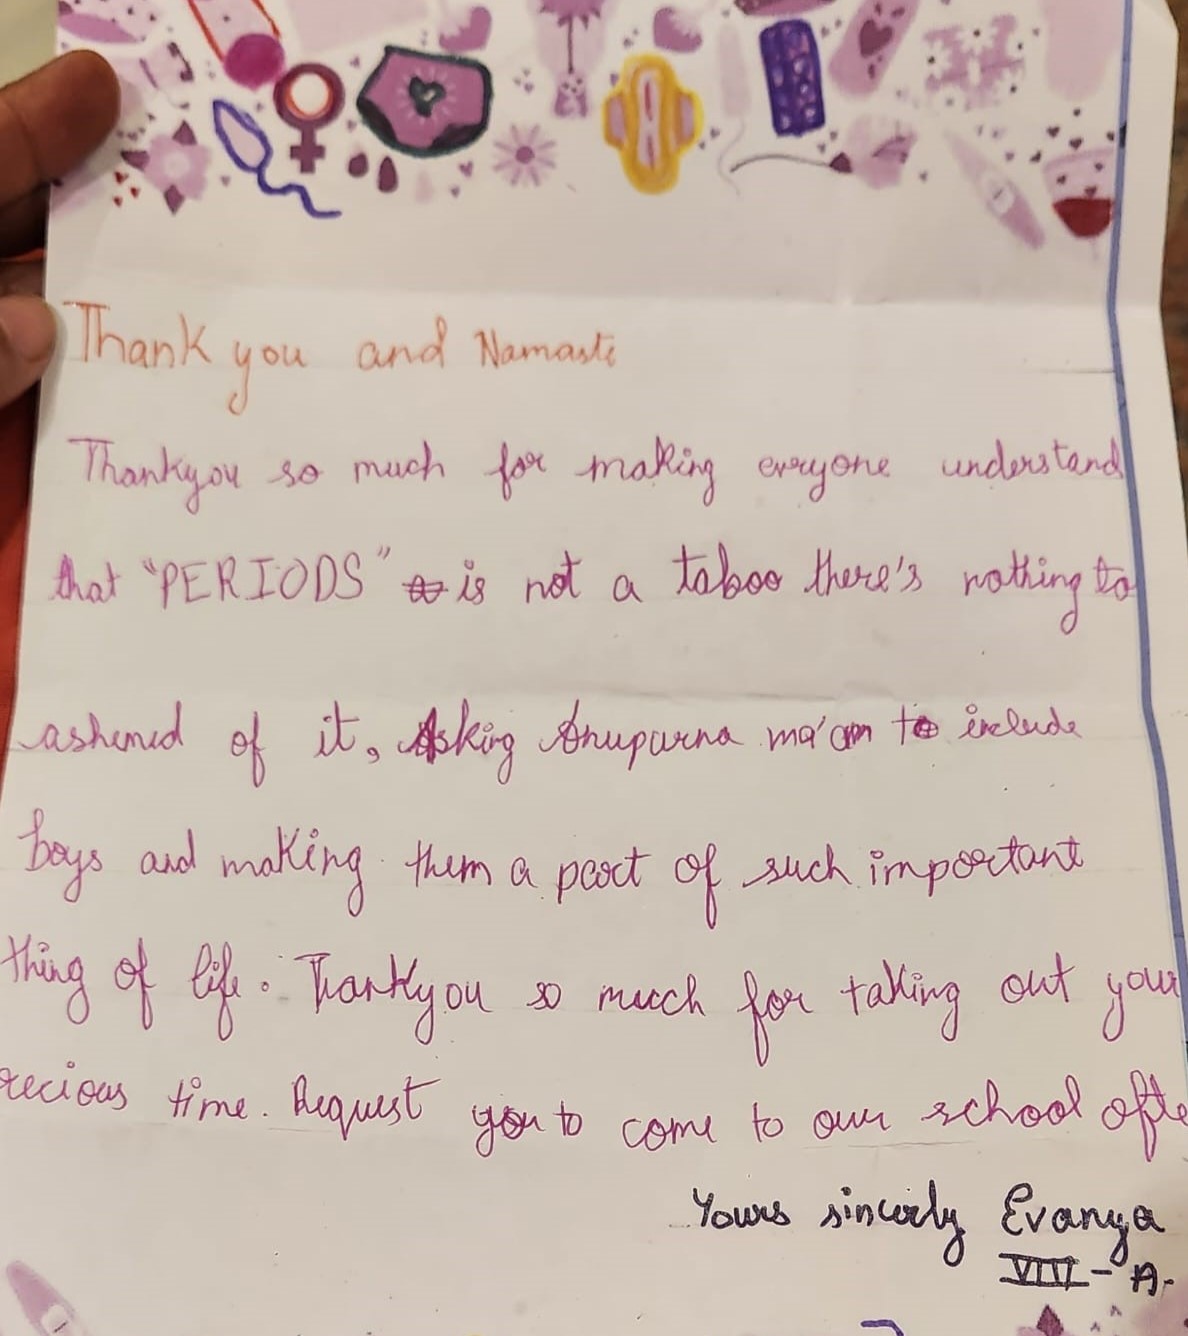 Thank you and Namaste
Thankyou so much for making everyone understand
that "PERIODS" is not a taboo there's nothing to
ashemed of it, Asking Anuparna ma'am to include
boys and making them a part of such important
thing of life. Thankyou so much for taking out your
recious time. Request you to come to our school ofte
Yours sincerly Evanya
VIII - A.